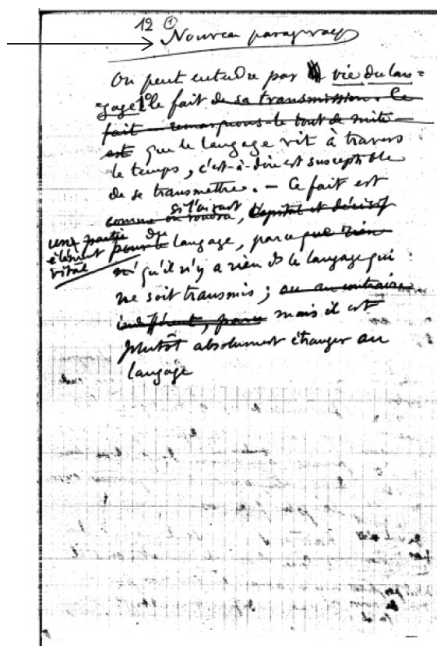 12 ①
Nouveau paragraphe
On peut entendre par vie du lan=
=gage 1° le fait de sa transmission. Ce
fait – remarquons-le tout de suite
est que le langage vit à travers
le temps, c'est-à-dire est susceptible
de se transmettre. – Ce fait est
si l'on veut
comme on voudra, capital et décisif
une partie du
élément pour le langage, parce que rien
vital
n' qu'il n'y a rien ds le langage qui
ne soit transmis ; ou au contraire
indifférent, parce mais il est
plutôt absolument étranger au
langage